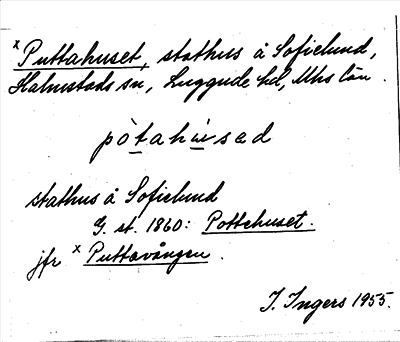 x Puttahuset, stathus å Sofielund,
Halmstads sn, Luggude hd, Mhs län.
pòtahùsəd
stathus å Sofielund
G. st. 1860: Pottehuset.
jfr x Puttavången.
I. Ingers 1955.